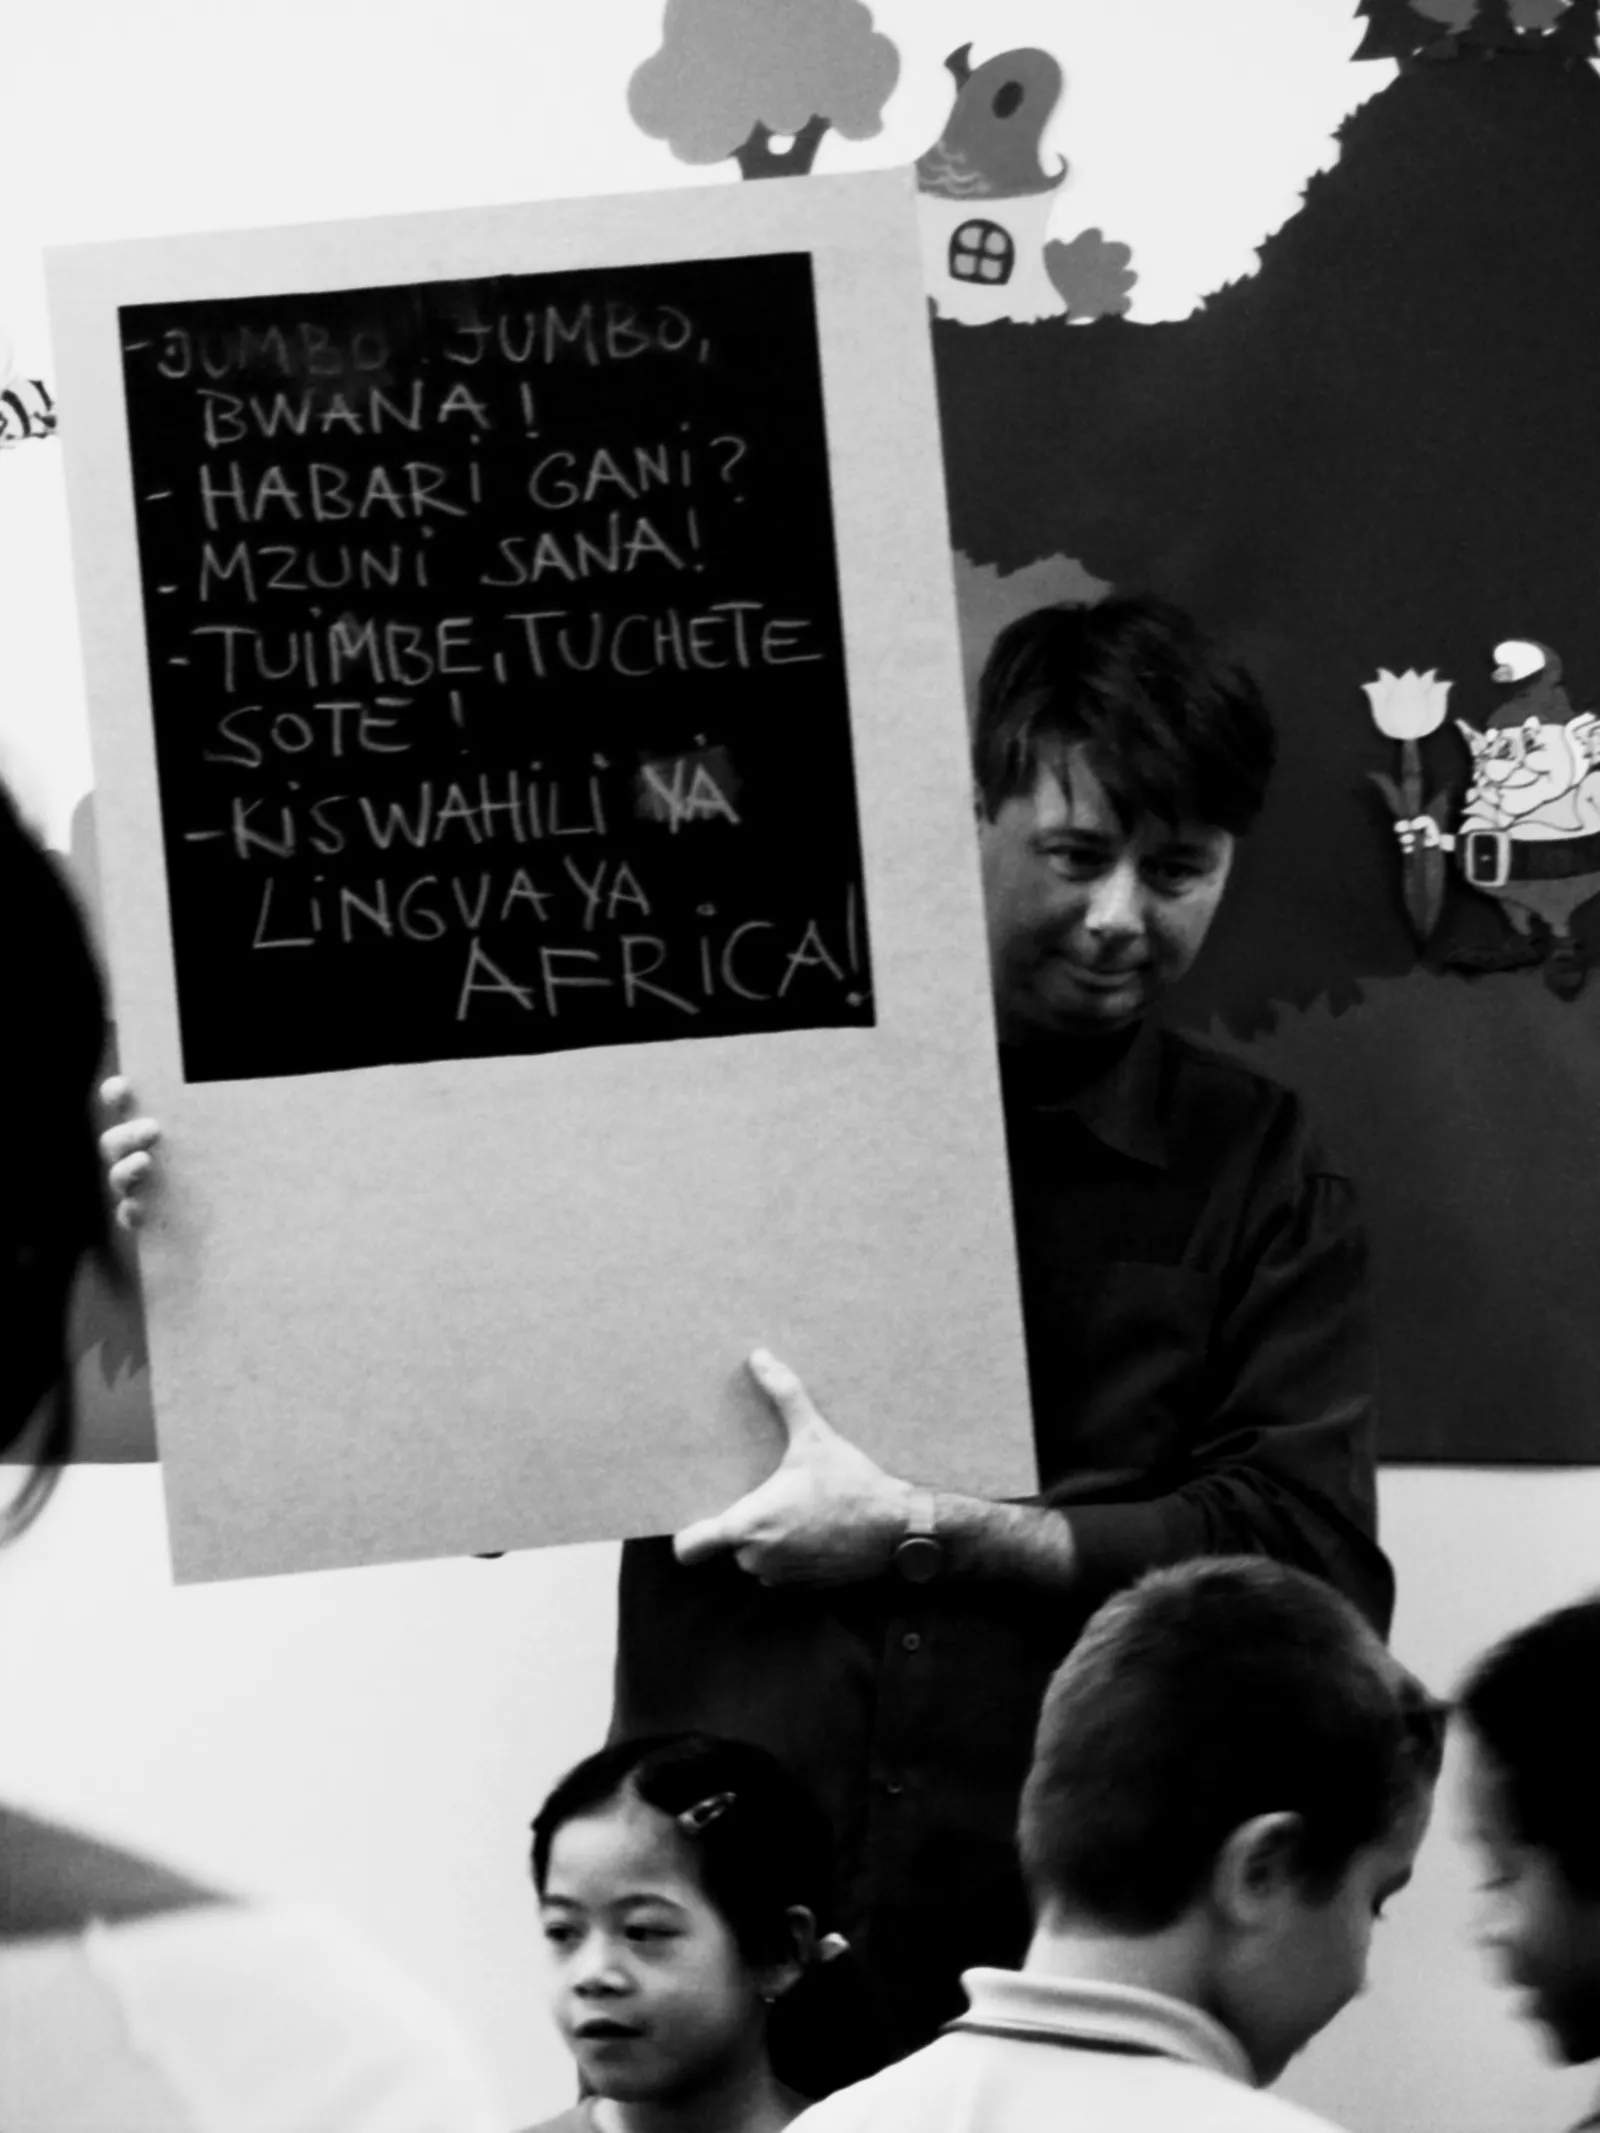 - JUMBO JUMBO,
BWANA!
- HABARi GANi?
- MZUNi SANA!
- TUiMBE, TUCHETE
SOTE!
- KiSWAHiLi YA
LiNGVA YA
AFRiCA!